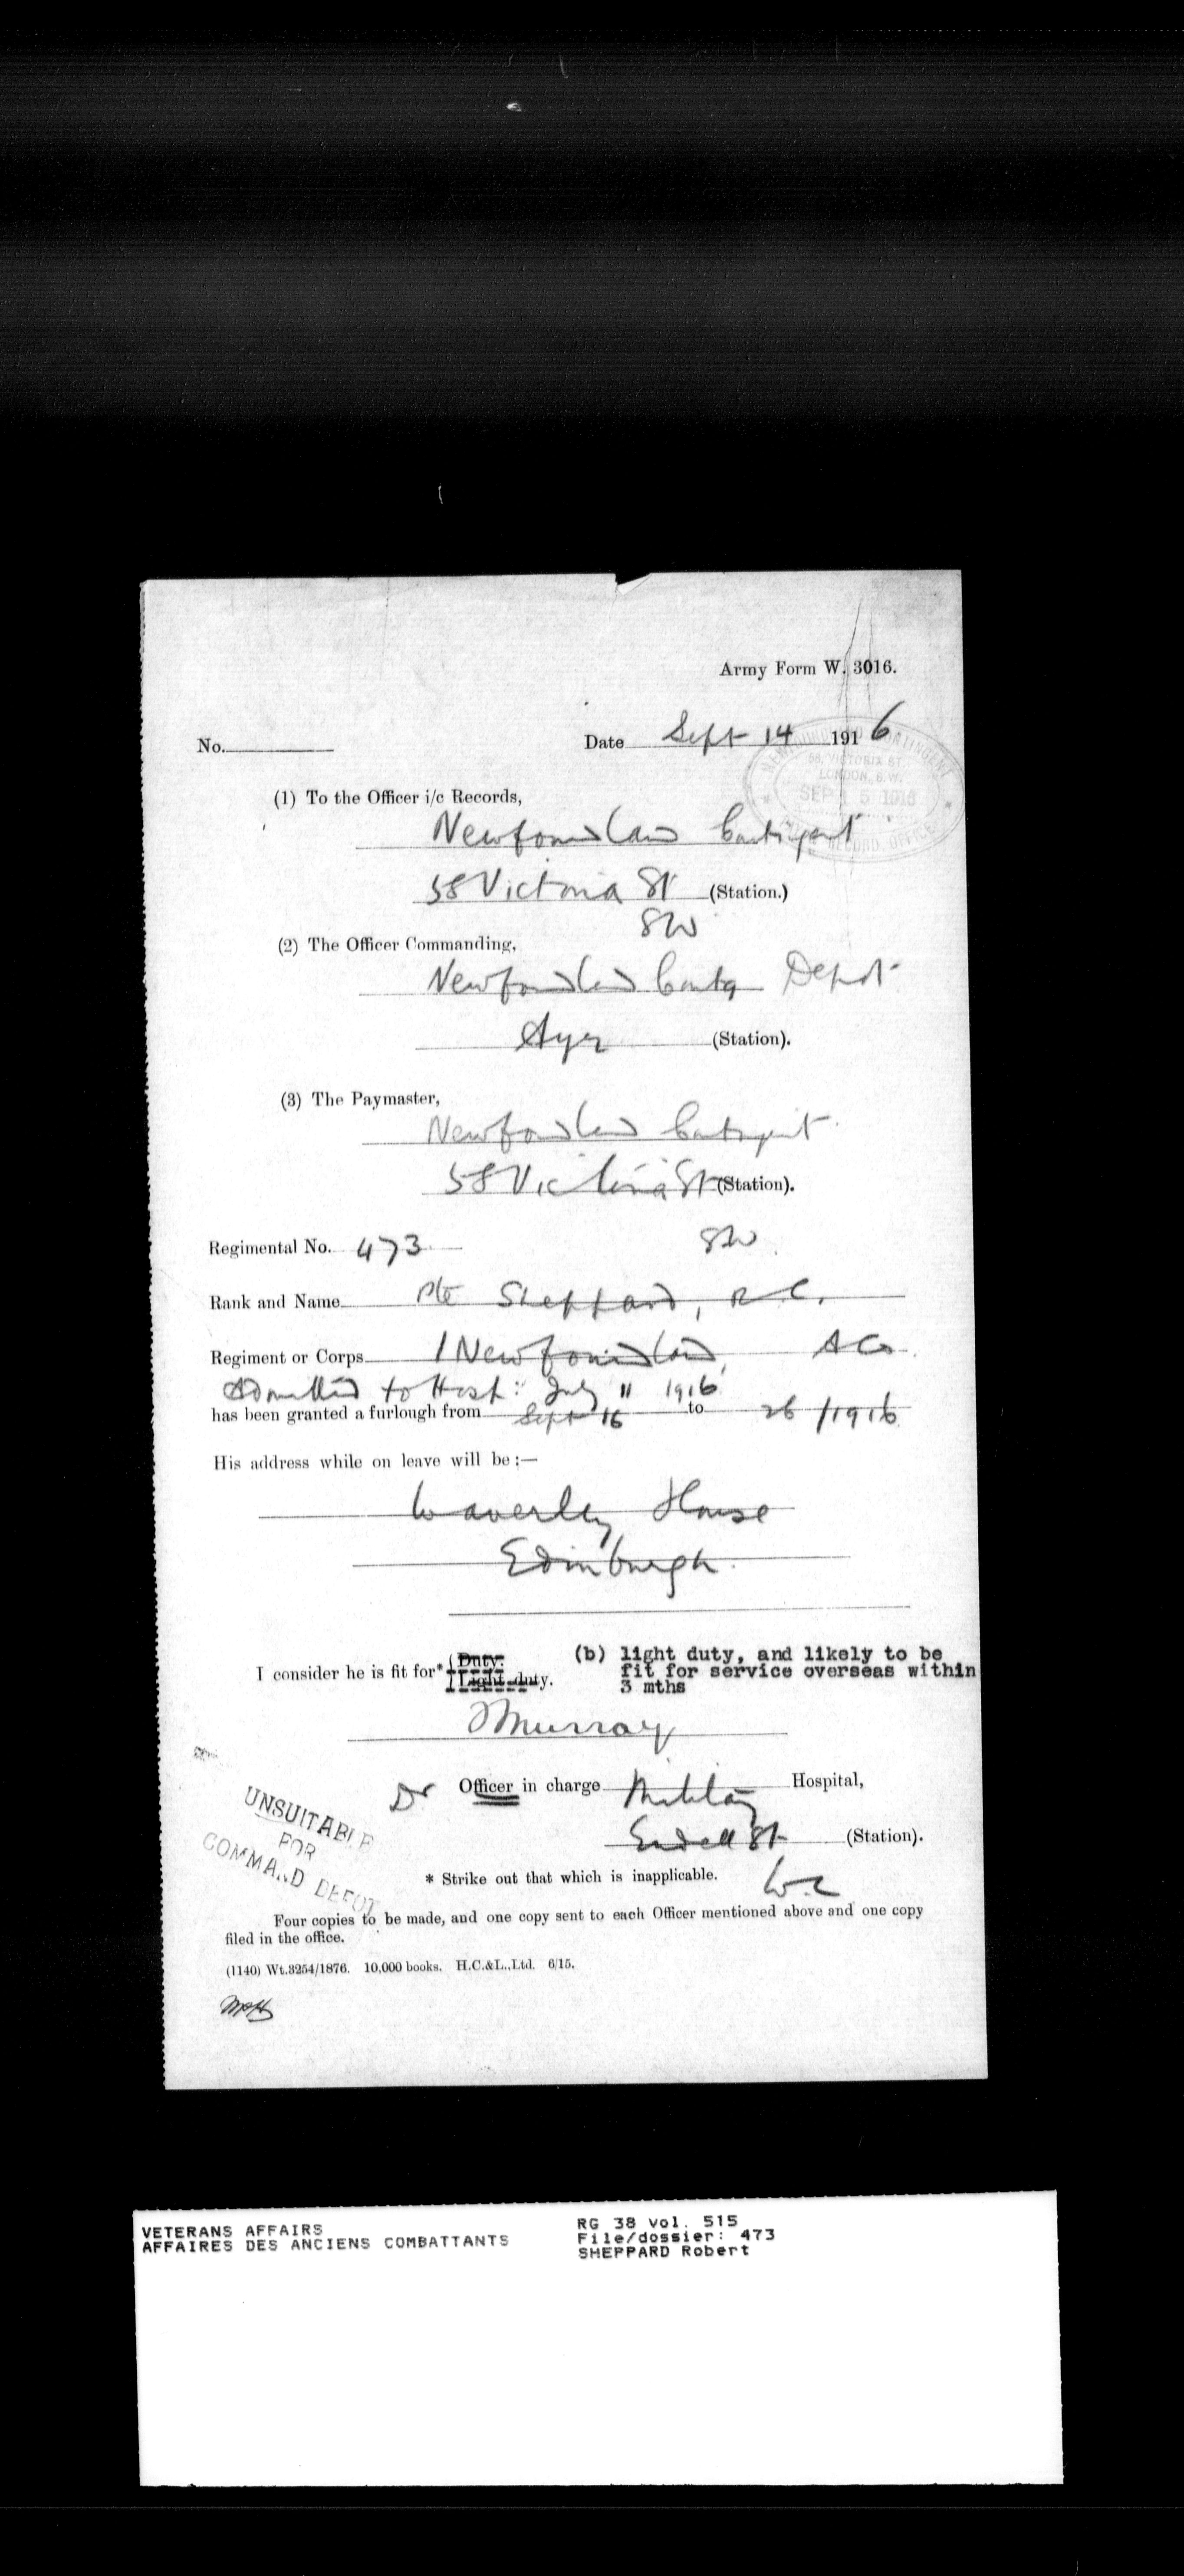 Army Form W. 3016.
No. Date Sept 14 1916
NEWFOUNDLAND CONTINGENT
58, VICTORIA ST.
LONDON, S.W.
SEP 15 1916
RECORD OFFICE
(1) To the Officer i/c Records,
Newfoundland Contingent
58 Victoria St (Station.)
SW
(2) The Officer Commanding,
Newfoundland Contg Depot
Ayr (Station).
(3) The Paymaster,
Newfoundland Contingent
58 Victoria St (Station).
SW
Regimental No. 473
Rank and Name Pte Sheppard, R C.
Regiment or Corps 1 Newfoundland, A Co.
Admitted to Hosp: July 11 1916
has been granted a furlough from Sept 16 to 26/1916
His address while on leave will be:—
Waverley House
Edinburgh.
I consider he is fit for* { Duty.
Light duty.
(b) light duty, and likely to be
fit for service overseas within
3 mths
Murray
Dr Officer in charge Military Hospital,
Endell St (Station).
W.C
UNSUITABLE
FOR
COMMAND DEPOT
* Strike out that which is inapplicable.
Four copies to be made, and one copy sent to each Officer mentioned above and one copy
filed in the office.
(1140) Wt.3254/1876. 10,000 books. H.C.&L.,Ltd. 6/15.
VETERANS AFFAIRS
AFFAIRES DES ANCIENS COMBATTANTS
RG 38 vol. 515
File/dossier: 473
SHEPPARD Robert